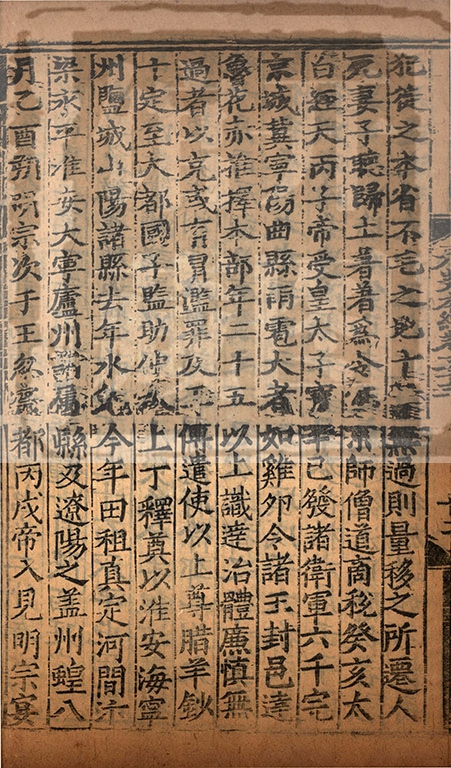 犯徙之本省不毛之地十年無過則量移之所遷人
死妻子聽歸土著著為令征京師僧道商稅癸亥太
白經天丙子帝受皇太子寶辛巳發諸衛軍六千完
京城冀寧陽曲縣雨雹大者如雞卵令諸王封邑達
魯花赤推擇本部年二十五以上識達治體廉慎無
過者以充或有冒濫罪及王傅遣使以上尊腊羊鈔
十定至大都國子監助仲秋上丁釋奠以淮安海寧
州鹽城山陽諸縣去年水免今年田租真定河間汴
梁永平淮安大寧廬州諸屬縣及遼陽之盖州蝗八
月乙酉朔明宗次于王忽察都丙戌帝入見明宗宴